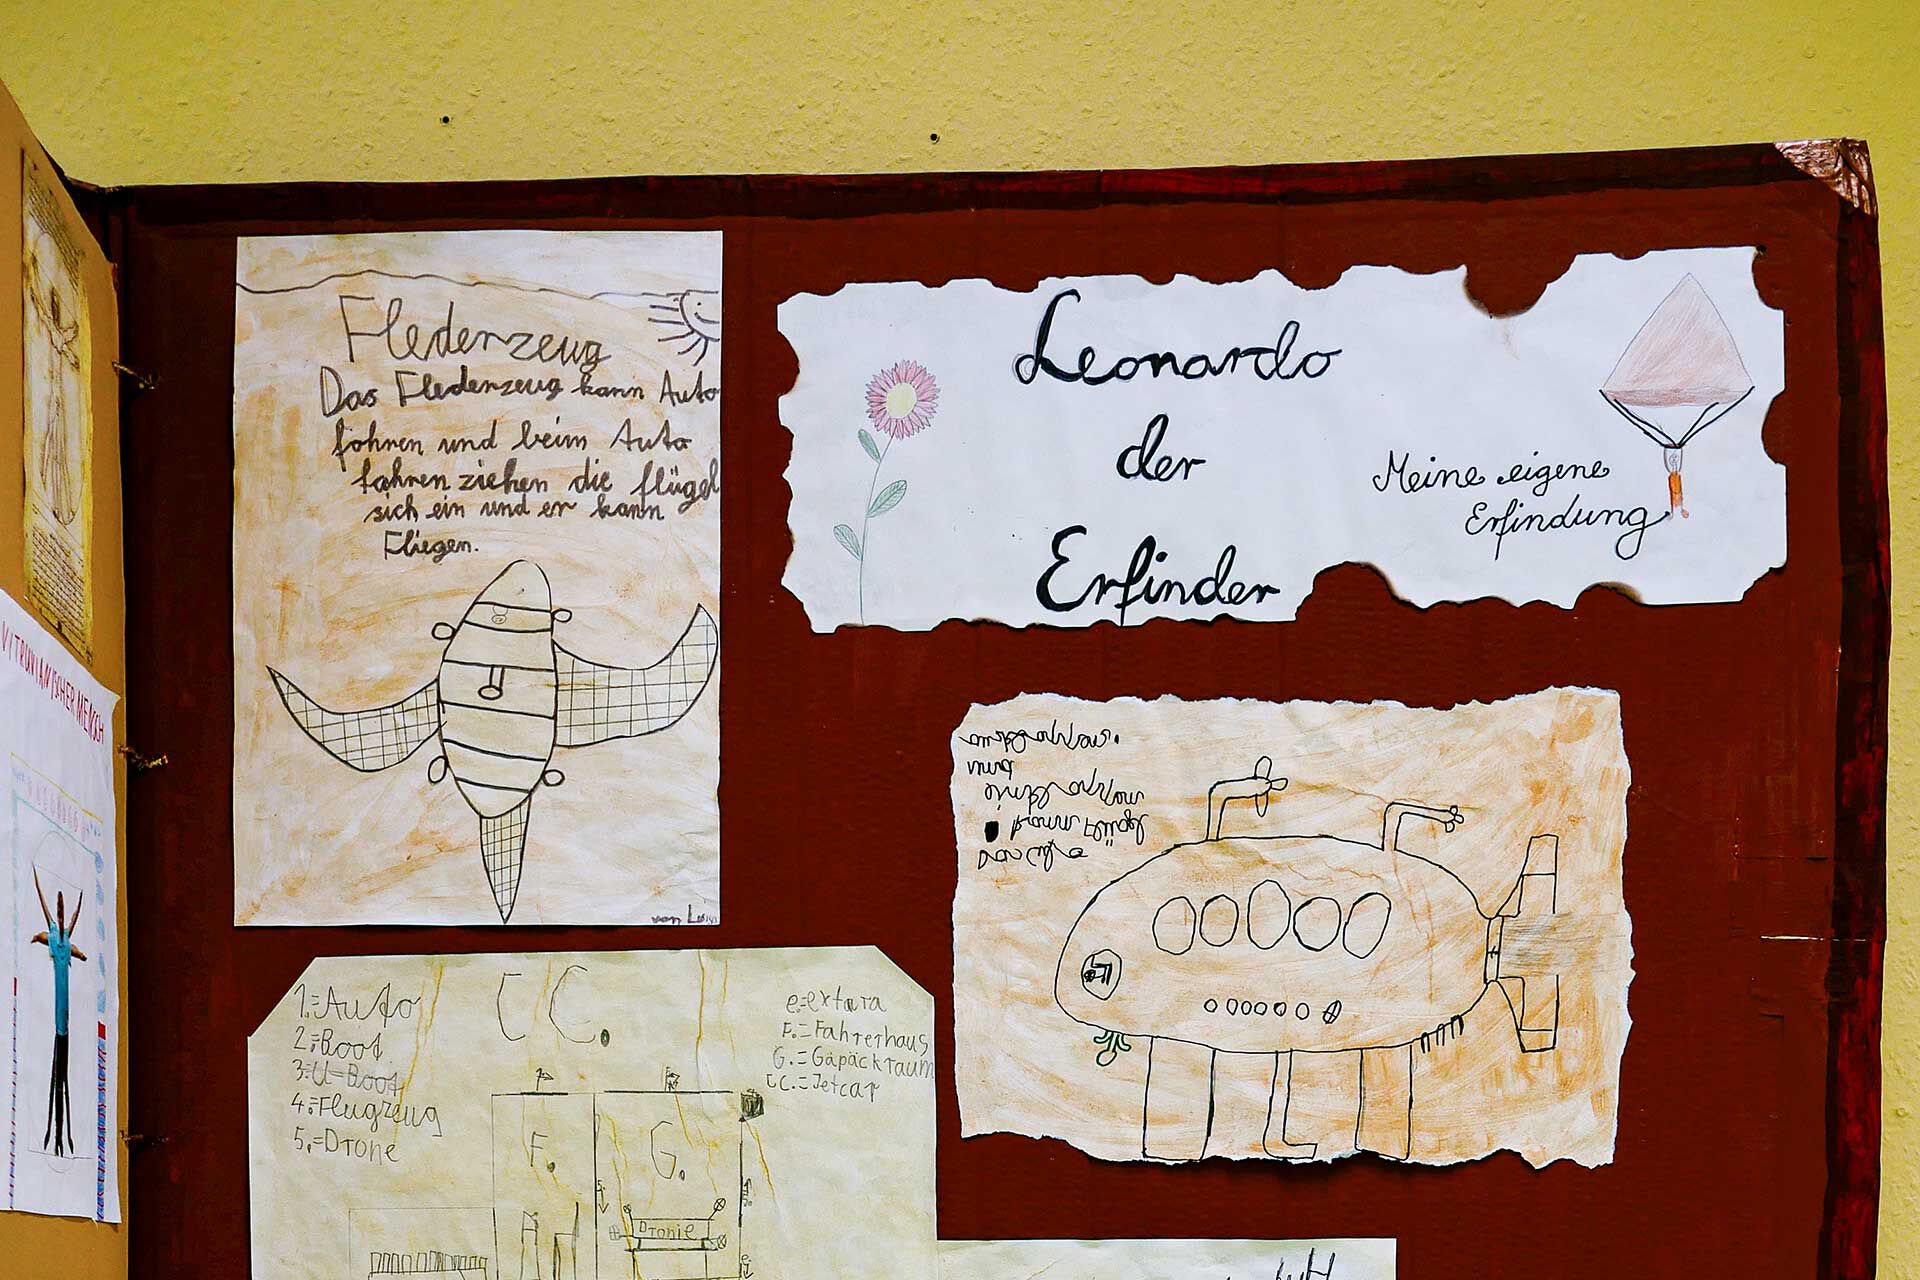 Fledenzeug
Das Fledenzeug kann Auto
fahren und beim Auto
fahren ziehen die flügel
sich ein und er kann
Fliegen.
von Luis
Leonardo
der
Erfinder
Meine eigene
Erfindung
VITRUVIANISCHER MENSCH
CC.
1.=Auto
2.=Boot
3.=U-Boot
4.=Flugzeug
5.=Drone
e.=extara
F.=Fahrerhaus
G.=Gäpäckraum
CC.=Jetcar
F.
G.
Dronie